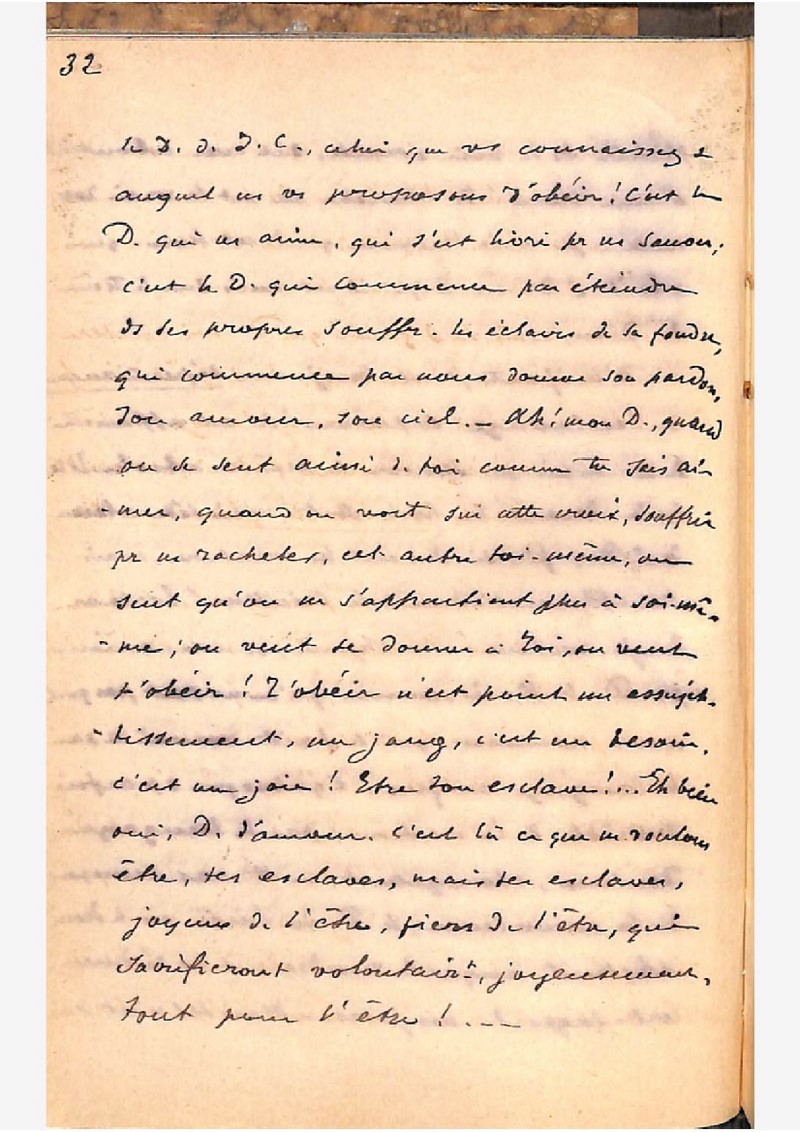 32
le D. d. J. C., celui que vs connaissez &
auquel ns vs proposons d'obéir! C'est le
D. qui ns aime, qui s'est livré pr ns sauver;
c'est le D. qui commence par éteindre
ds ses propres souffr. les éclairs de sa foudre,
qui commence par nous donner son pardon,
son amour, son ciel. _ Ah! mon D., quand
on se sent aimé d. toi comme tu sais ai-
-mer, quand on voit sur cette croix, souffrir
pr ns racheter, cet autre toi-même, on
sent qu'on ne s'appartient plus à soi-mê-
-me; on veut se donner à Toi, on veut
t'obéir! T'obéir n'est point un assujet-
-tissement, un joug, c'est un besoin,
c'est une joie! Etre ton esclave!... Eh bien
oui, D. d'amour. c'est là ce que ns voulons
être, tes esclaves, mais tes esclaves,
joyeux de l'être, fiers de l'être, qui
sacrifieront volontairt, joyeusement,
tout pour l'être! . _ _